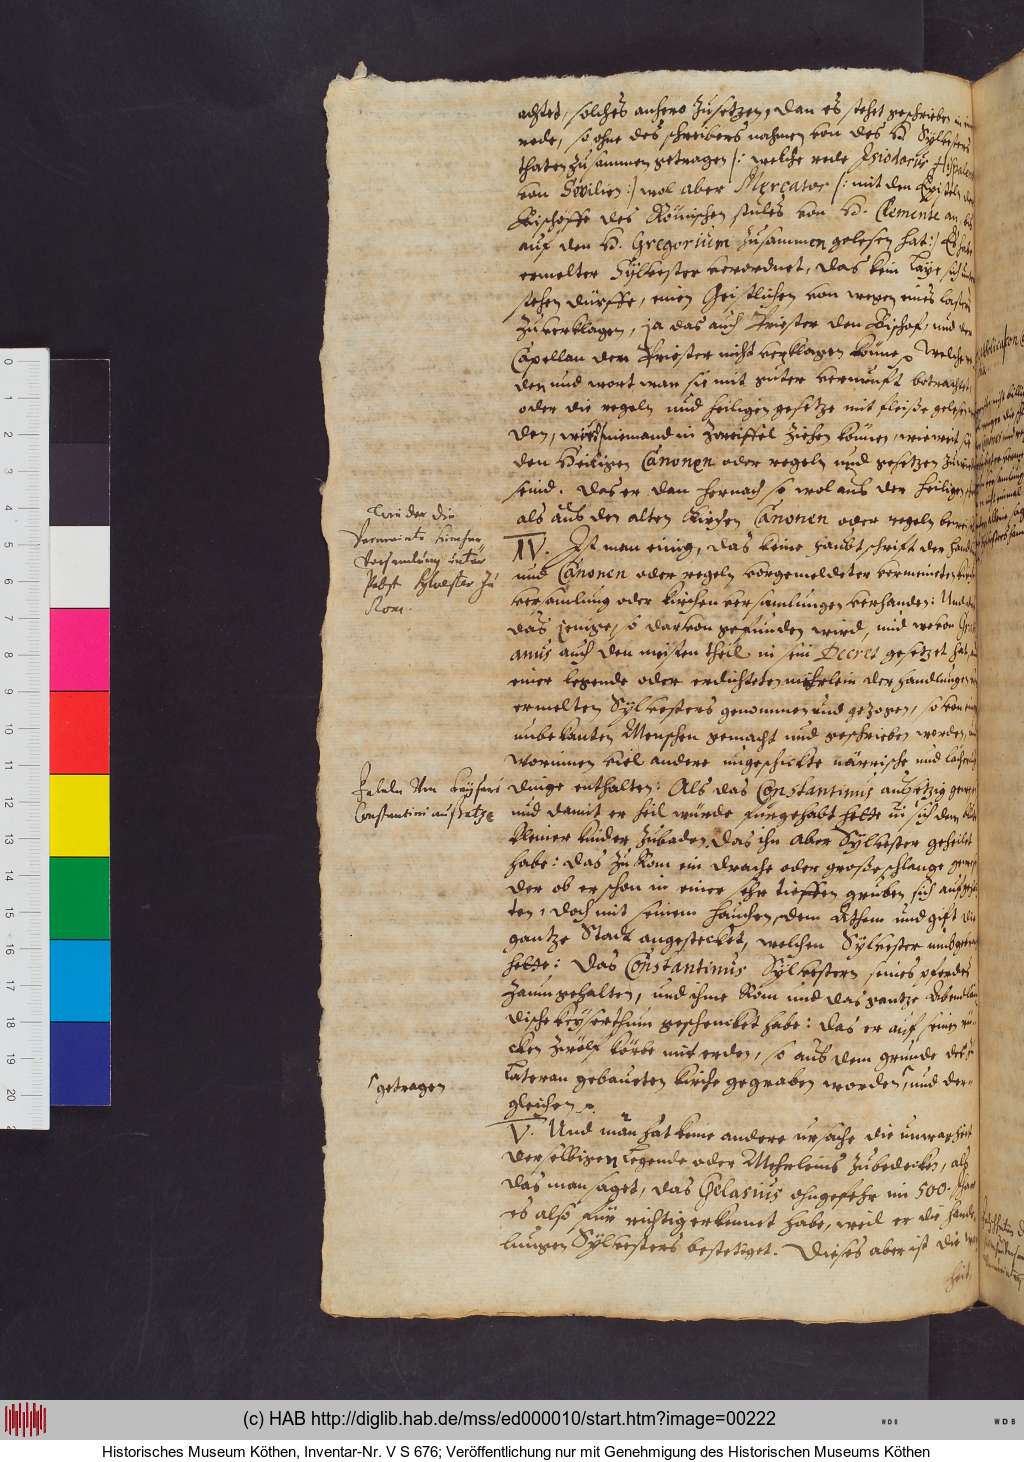 achtet, solches anhero zusetzen, dan es stehet geschrieben in
rede, so ohne des schreibers nahmen von des H. Sylvesters
thaten zusammen getragen /: welche rede Isiodorus Hispalen
von Sevilien :/ wol aber Mercator /: mit den Episteln der
Bischoffe des Römischen stules von H. Clemente an bis
auf den H. Gregorium zusammen gelesen hat :/ Es habe
ermelter Sylvester verordnet, das kein Laye, sich unter
stehen dürffe, einen Geistlichen von wegen eines lasters
zuverklagen, ja das auch Priester den Bischof, und der
Capellan den Priester nicht verklagen könne. Welche re
den und wort wan sie mit guter vernunft betrachtet,
oder die regeln und heiligen gesetze mit fleiße gelesen
den, wird niemand in zweiffel ziehen können, wie weit sie
den heiligen Canonen oder regeln und gesetzen zuwieder
seind. Das er dan hernach so wol aus der heiligen
als aus den alten Kirchen Canonen oder regeln beweiset
Wieder die
Vermeinte
Versamlung unter
Pabst Sylvester zu
Rom.
IV. Ist man einig, das keine haubtschrift der hand
und Canonen oder regeln vorgemeldeter vermeineten
versamlung oder Kirchen versamlungen verhanden: Und
das jenige, so darvon gefunden wird, und wovon Grati
anus auch den meisten theil in sein Decret gesetzet hat,
einer legende oder erdichteten mehrlein der handlungen
ermelten Sylvesters genommen und gezogen, so von einem
unbekanten Menschen gemacht und geschrieben worden,
worinnen viel andere ungeschickte närrische und lächerliche
Fabeln Von Keysers
Constantini aussatze
dinge enthalten: Als das Constantinus aussetzig gewesen
und damit er heil würde fürgehabt hette sich in dem blut
kleiner kinder zubaden, das ihn aber Sylvester geheilet
habe: das zu Rom ein drache oder große schlange gewesen
der ob er schon in einer sehr tieffen gruben sich aufgehal
ten, doch mit seinem hauchen, dem Athem und gift die
gantze Stadt angestecket, welchen Sylvester umbgebracht
hette: Das Constantinus Sylvestern seines pferdes
zaum gehalten, und ihme Rom und das gantze Abendlän
dische keyserthum geschencket habe: das er auf seinem rü=
cken zwölf körbe mit erden, so aus dem grunde der zu
Lateran gebaueten kirche gegraben worden, und der=
getragen
gleichen
V. Und man hat keine andere ursache die unwarheit
derselbigen Legende oder Mehrleins zubedecken, als
das man saget, das Gelasius ohngefehr im 500. Jhar
es also für richtig erkennet habe, weil er die hand
lungen Sylvesters bestetiget. Dieses aber ist die war
heit,
0
1
2
3
4
5
6
7
8
9
10
11
12
13
14
15
16
17
18
19
20
(c) HAB http://diglib.hab.de/mss/ed000010/start.htm?image=00222
WDB
WDB
Historisches Museum Köthen, Inventar-Nr. V S 676; Veröffentlichung nur mit Genehmigung des Historischen Museums Köthen